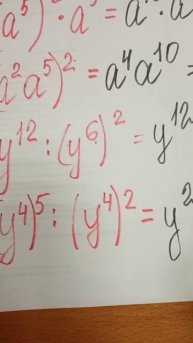 a⁵)  · a  = a  · a
a² a⁵)² = a⁴a¹⁰ =
y¹² : (y⁶)² = y¹²
y⁴)⁵ : (y⁴)² = y²